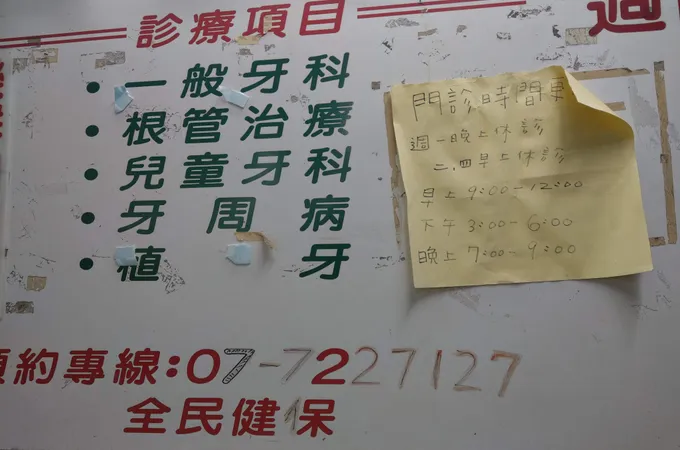 診療項目
週
・一般牙科
・根管治療
・兒童牙科
・牙周病
・植牙
門診時間表
週一晚上休診
二、四早上休診
早上 9:00-12:00
下午 3:00-6:00
晚上 7:00-9:00
預約專線:07-7227127
全民健保